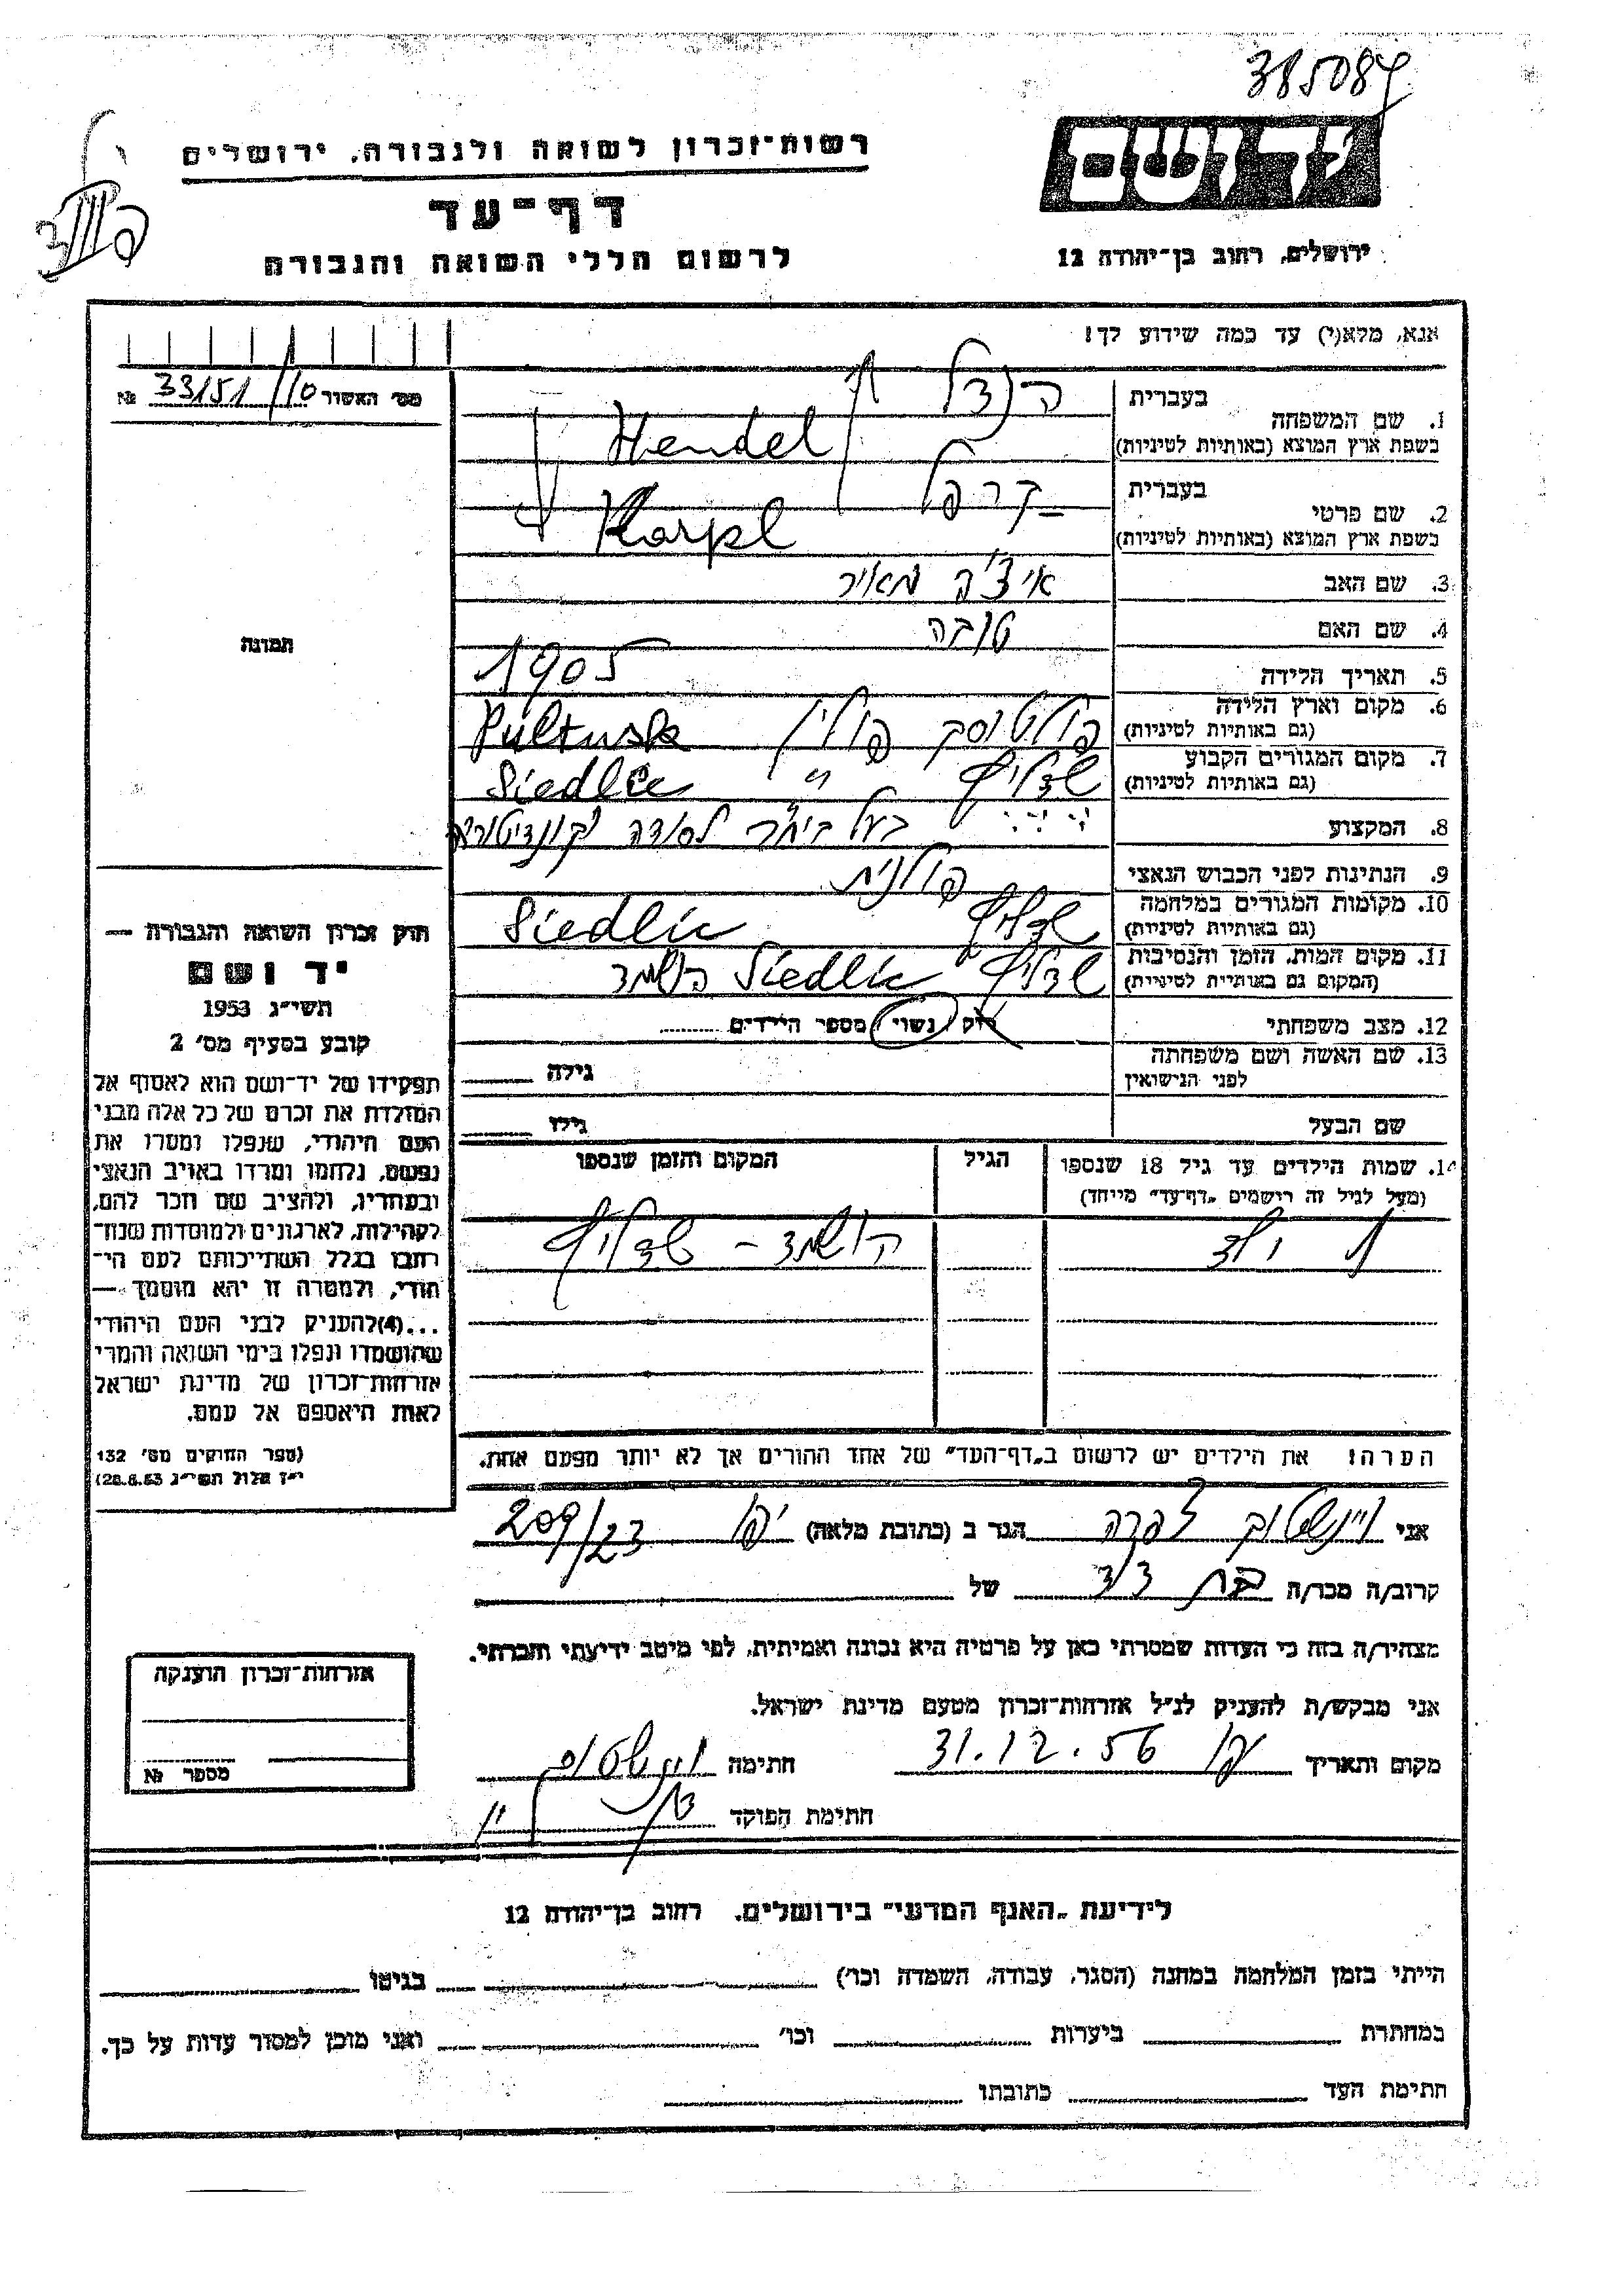 385084
יד ושם
ירושלים, רחוב בן־יהודה 12
רשות־זכרון לשואה ולגבורה, ירושלים
דף־עד
לרשום חללי השואה והגבורה
אנא, מלא(י) עד כמה שידוע לך!
מס׳ האשור 33151/10 №
תמונה
1. שם המשפחה בעברית הנדל
בשפת ארץ המוצא (באותיות לטיניות) Hendel
2. שם פרטי בעברית קרפל
בשפת ארץ המוצא (באותיות לטיניות) Karpl
3. שם האב איצ׳ה מאיר
4. שם האם טובה
5. תאריך הלידה 1905
6. מקום וארץ הלידה (גם באותיות לטיניות) פולטוסק פולין Pultusk
7. מקום המגורים הקבוע (גם באותיות לטיניות) שדליץ " Siedlic
8. המקצוע בעל ביח"ר לסודה וקונדיטוריה
9. הנתינות לפני הכבוש הנאצי פולנית
10. מקומות המגורים במלחמה (גם באותיות לטיניות) שדליץ Siedlic
11. מקום המות, הזמן והנסיבות (המקום גם באותיות לטיניות) שדליץ Siedlic הושמד
12. מצב משפחתי רוק / נשוי / מספר הילדים
13. שם האשה ושם משפחתה לפני הנישואין גילה
שם הבעל גילו
14. שמות הילדים עד גיל 18 שנספו הגיל המקום והזמן שנספו
(מעל לגיל זה רישמים "דף־עד" מייחד)
ילד הושמד - שדליץ
הערה! את הילדים יש לרשום ב"דף־העד" של אחד ההורים אך לא יותר מפעם אחת.
חוק זכרון השואה והגבורה —
יד ושם
תשי״ג 1953
קובע בסעיף מס׳ 2
תפקידו של יד־ושם הוא לאסוף אל
המולדת את זכרם של כל אלה מבני
העם היהודי, שנפלו ומסרו את
נפשם, נלחמו ומרדו באויב הנאצי
ובעוזריו, ולהציב שם וזכר להם,
לקהילות, לארגונים ולמוסדות שנח־
רבו בגלל השתייכותם לעם הי־
הודי, ולמטרה זו יהא מוסמך —
...(4)להעניק לבני העם היהודי
שהושמדו ונפלו בימי השואה והמרי
אזרחות־זכרון של מדינת ישראל
לאות היאספם אל עמם.
(ספר החוקים מס׳ 132
י״ז אלול תשי״ג 28.8.53)
אני ויינשטוק הגר ב (כתובת מלאה) יפו 209/23
קרוב/ה מכר/ה בת דוד של
מצהיר/ה בזה כי העדות שמסרתי כאן על פרטיה היא נכונה ואמיתית, לפי מיטב ידיעתי והכרתי.
אני מבקש/ת להעניק לנ״ל אזרחות־זכרון מטעם מדינת ישראל.
מקום ותאריך יפו 31.12.56 חתימה
חתימת הפוקד
אזרחות־זכרון הוענקה
מספר №
לידיעת "האגף המדעי" בירושלים, רחוב בן־יהודה 12
הייתי בזמן המלחמה במחנה (הסגר, עבודה, השמדה וכו׳) בגיטו
במחתרת ביערות וכו׳ ואני מוכן למסור עדות על כך.
חתימת העד כתובתו